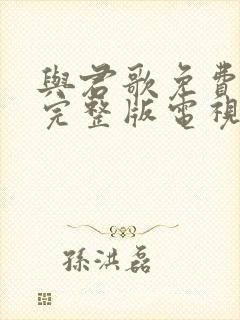 與君歌免費
完整版電視
孫洪磊